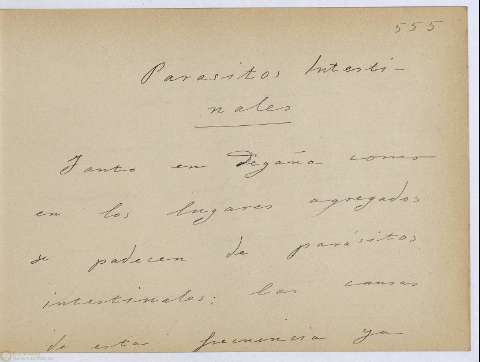 555
Parasitos Intesti-
nales
Tanto en Degaña como
en los lugares agregados
se padecen de parásitos
intestinales: las causas
de esta frecuencia ya